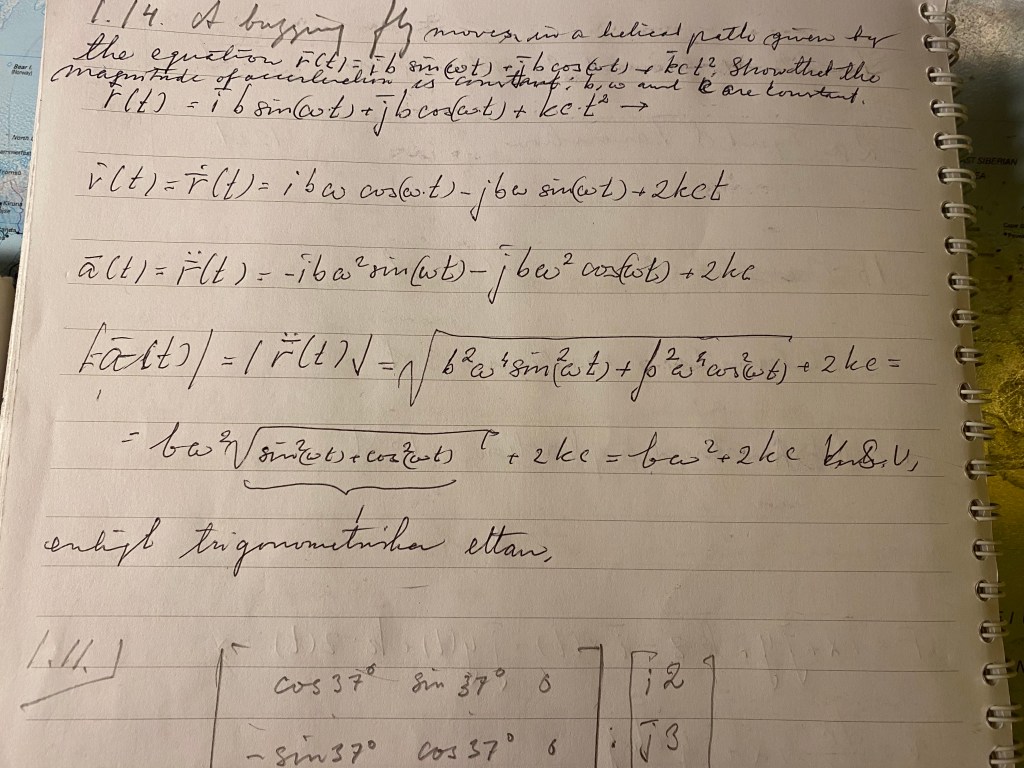 1.14. A buzzing fly moves in a helical path given by
the equation r̄(t) = īb sin(ωt) + j̄b cos(ωt) + k̄ct². Show that the
magnitude of acceleration is constant; b, ω and c are constant.
r̄(t) = ī b sin(ωt) + j̄ b cos(ω·t) + kc·t² →
v̄(t) = ṙ̄(t) = i b ω cos(ω·t) - jbω sin(ωt) + 2kct
ā(t) = r̈̄(t) = -ībω² sin(ωt) - j̄bω² cos(ωt) + 2kc
|ā(t)| = |r̈̄(t)| = √(b²ω⁴sin²(ωt) + b²ω⁴cos²(ωt)) + 2kc =
= bω²√(sin²(ωt) + cos²(ωt)) + 2kc = bω² + 2kc V.S.V,
enligt trigonometriska ettan,
1.11.
cos37° sin 37° 0 ī2
-sin37° cos37° 0 · j̄3
Bear I.
EAST SIBERIAN
SEA